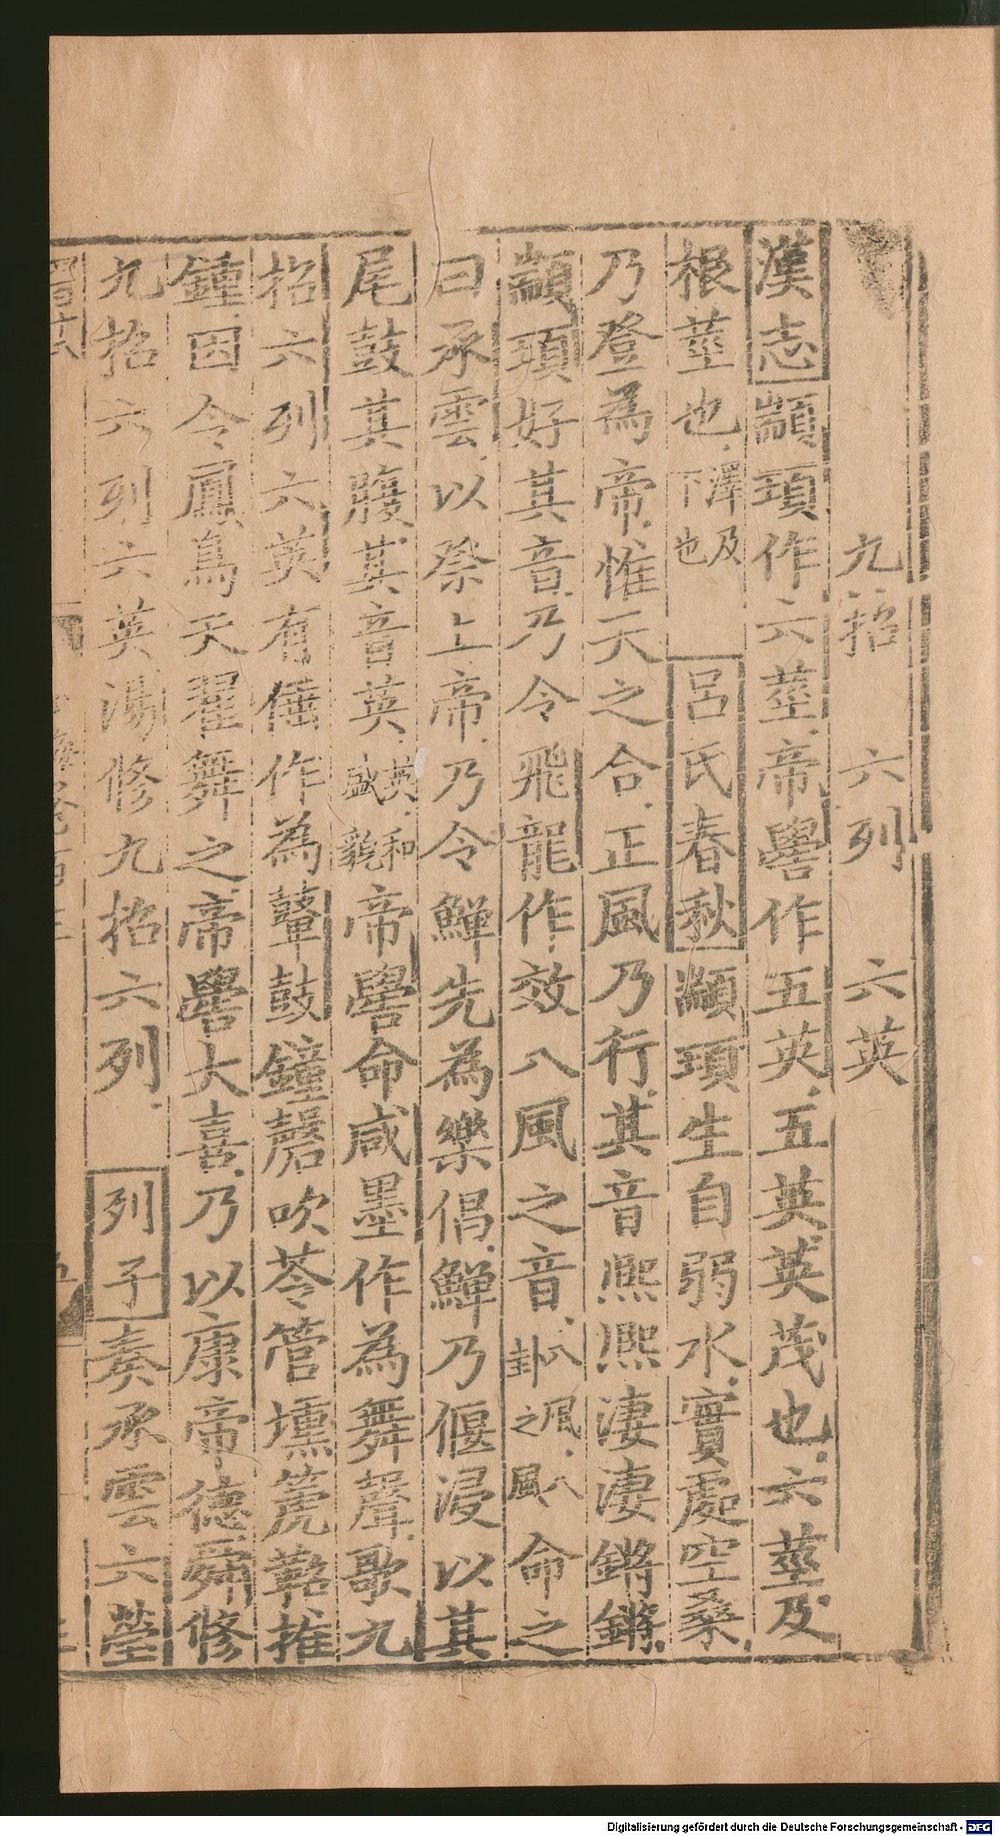 九招　六列　六英
漢志顓頊作六莖帝嚳作五英五英英茂也六莖及
根莖也澤及下也　呂氏春秋顓頊生自弱水實處空桑
乃登為帝惟天之合正風乃行其音熙熙淒淒鏘鏘
顓頊好其音乃令飛龍作效八風之音八風八卦之風命之
曰承雲以祭上帝乃令鱓先為樂倡鱓乃偃浸以其
尾鼓其腹其音英英和盛貌帝嚳命咸墨作為舞聲歌九
招六列六英有倕作為鼙鼓鐘磬吹苓管壎箎鞀推
鍾因令鳳鳥天翟舞之帝嚳大喜乃以康帝德舜修
九招六列六英湯修九招六列　列子奏承雲六瑩
Digitalisierung gefördert durch die Deutsche Forschungsgemeinschaft - DFG